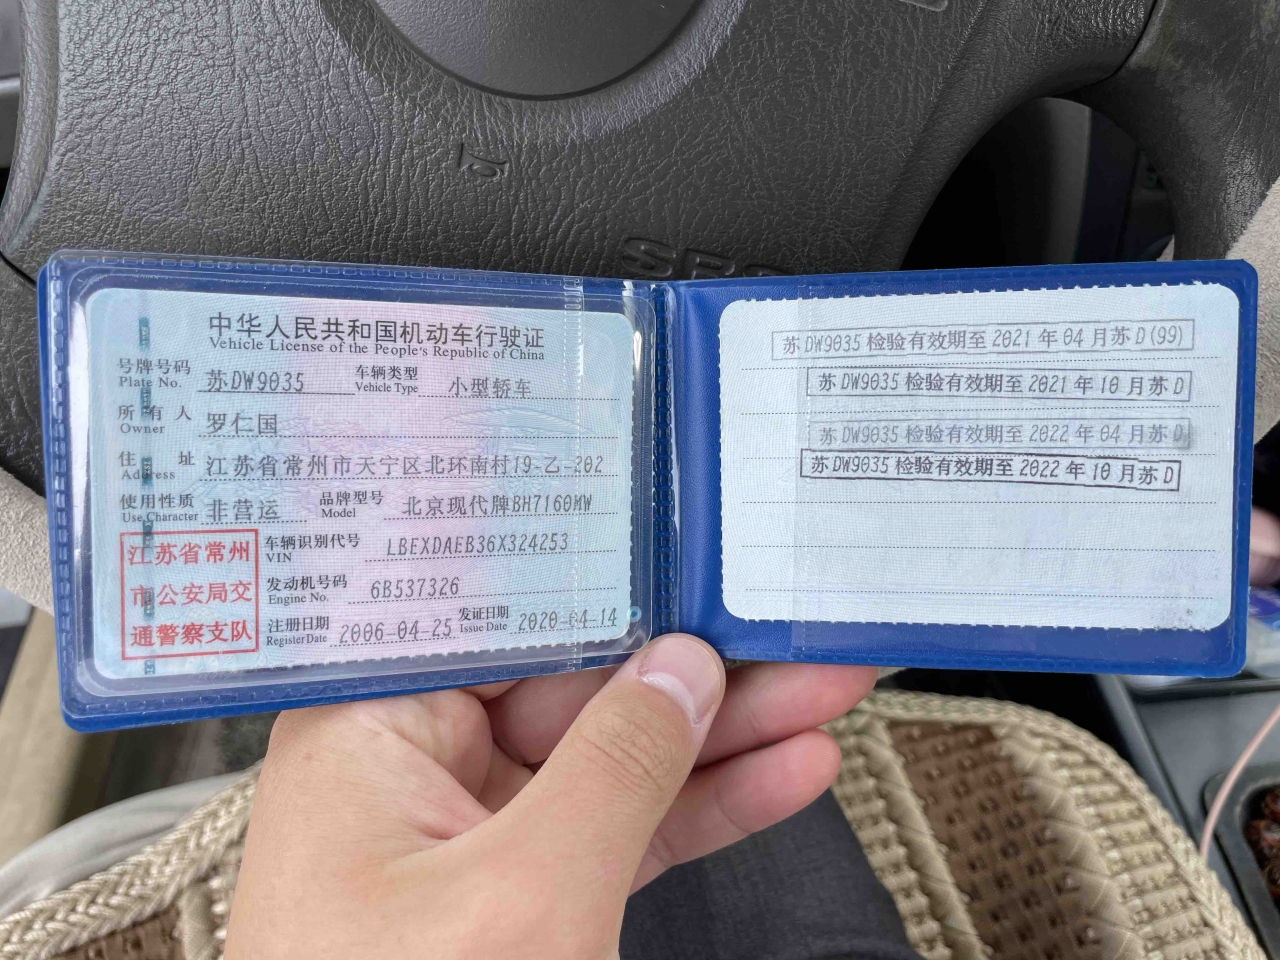 SRS
中华人民共和国机动车行驶证
Vehicle License of the People's Republic of China
号牌号码 苏DW9035 车辆类型 小型轿车
Plate No. Vehicle Type
所有人 罗仁国
Owner
住址 江苏省常州市天宁区北环南村19-乙-202
Address
使用性质 非营运 品牌型号 北京现代牌BH7160MW
Use Character Model
江苏省常州
市公安局交
通警察支队
车辆识别代号 LBEXDAEB36X324253
VIN
发动机号码 6B537326
Engine No.
注册日期 2006-04-25 发证日期 2020-04-14
Register Date Issue Date
苏DW9035检验有效期至2021年04月苏D(99)
苏DW9035检验有效期至2021年10月苏D
苏DW9035检验有效期至2022年04月苏D
苏DW9035检验有效期至2022年10月苏D